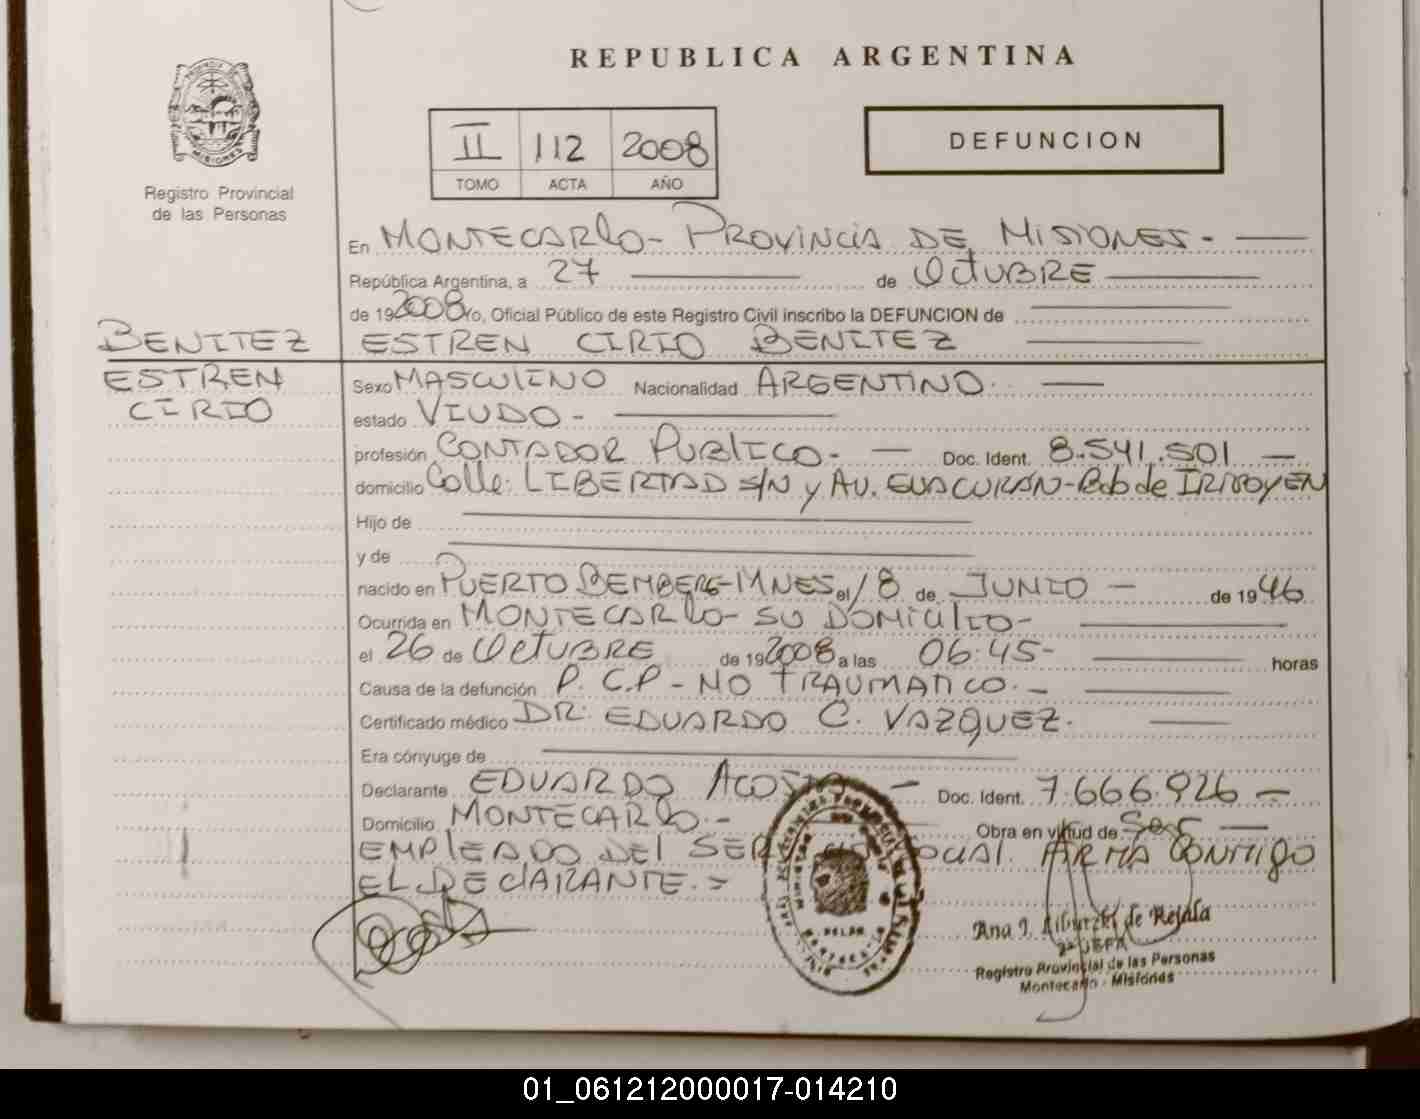 REPUBLICA ARGENTINA
PROVINCIA DE
MISIONES
Registro Provincial
de las Personas
II 112 2008
TOMO ACTA AÑO
DEFUNCION
En MONTECARLO - PROVINCIA DE MISIONES -
República Argentina, a 27 de OCTUBRE
de 19 2008 Yo, Oficial Público de este Registro Civil inscribo la DEFUNCION de
BENITEZ ESTREN CIRIO BENITEZ
ESTREN
CIRIO
Sexo MASCULINO Nacionalidad ARGENTINO.
estado VIUDO -
profesión CONTADOR PUBLICO - Doc. Ident. 8.541.501
domicilio Calle: LIBERTAD S/N y AV. GUACURARI - Bdo de IRIGOYEN
Hijo de
y de
nacido en PUERTO BEMBERG - MNES el 18 de JUNIO de 1946
Ocurrida en MONTECARLO - SU DOMICILIO -
el 26 de OCTUBRE de 19 2008 a las 06:45 - horas
Causa de la defunción P.C.P - NO TRAUMATICO. -
Certificado médico DR. EDUARDO C. VAZQUEZ.
Era cónyuge de
Declarante EDUARDO ACOSTA - Doc. Ident. 7.666.926 -
Domicilio MONTECARLO. - Obra en virtud de Ser
EMPLEADO DEL SOCIAL. FIRMA CONMIGO
EL DECLARANTE. -
Ana I. de Rejala
2ª JEFA
Registro Provincial de las Personas
Montecarlo - Misiones
01_061212000017-014210